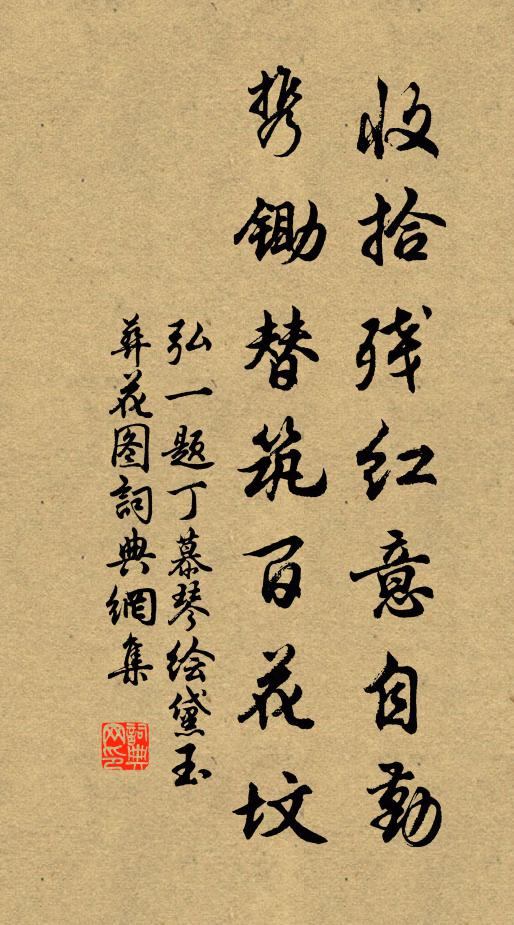 收拾残红意自勤
携锄替筑百花坟
弘一题丁慕琴绘黛玉
葬花图詞典網集
詞典网印